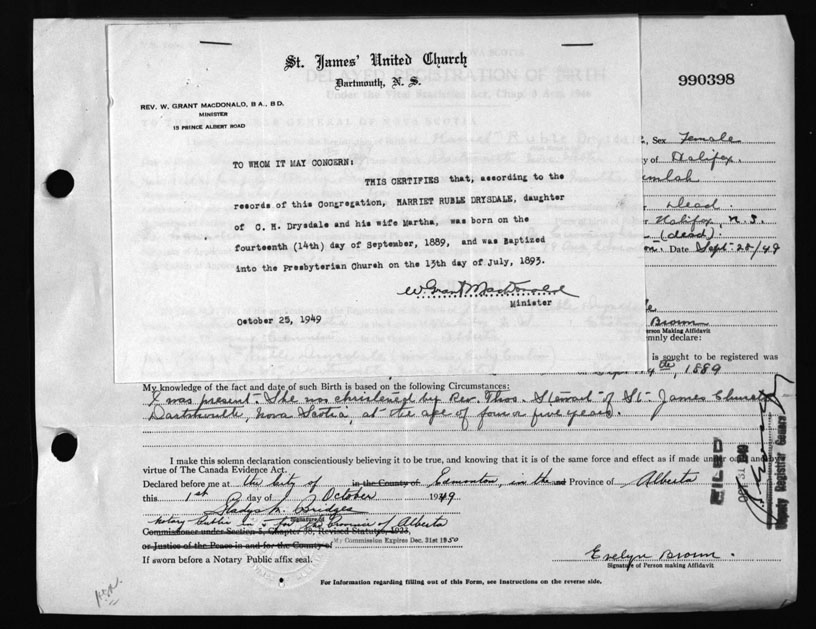 St. James' United Church
Dartmouth, N. S.
DELAYED REGISTRATION OF BIRTH
990398
REV. W. GRANT MACDONALD, B A., B D.
MINISTER
15 PRINCE ALBERT ROAD
Sex Female
of Halifax.
TO WHOM IT MAY CONCERN:
THIS CERTIFIES that, according to the
records of this Congregation, HARRIET RUBLE DRYSDALE, daughter
of C. M. Drysdale and his wife Martha, was born on the
fourteenth (14th) day of September, 1889, and was Baptized
into the Presbyterian Church on the 13th day of July, 1893.
Dead.
Halifax, N. S.
(dead).
Date Sept. 28/49
W. Grant MacDonald
Minister
October 25, 1949
Brown
Person Making Affidavit
emnly declare:
is sought to be registered was
1889
My knowledge of the fact and date of such Birth is based on the following Circumstances:
I was present. She was christened by Rev. Thos. Stewart of St. James Church
Dartmouth, Nova Scotia, at the age of four or five years.
I make this solemn declaration conscientiously believing it to be true, and knowing that it is of the same force and effect as if made under oath and by
virtue of The Canada Evidence Act.
Declared before me at the City of in the County of Edmonton, in the and Province of Alberta
this 1st day of October 1949
Gladys M. Bridges
Notary Public in & for the Province of Alberta
Commissioner under Section 5, Chapter 38, Revised Statutes, 1923,
or Justice of the Peace in and for the County of My Commission Expires Dec. 31st 1950
If sworn before a Notary Public affix seal.
Evelyn Brown.
Signature of Person making Affidavit
For Information regarding filling out of this Form, see Instructions on the reverse side.
FILED
Deputy Registrar General